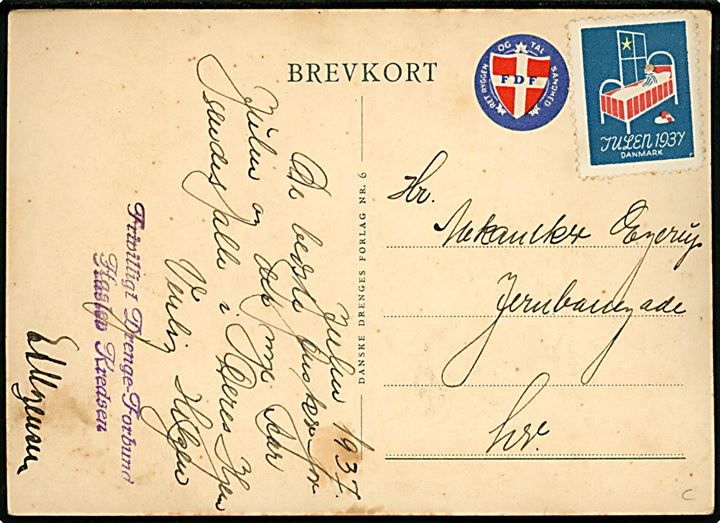 BREVKORT
RET RYGGEN OG TAL SANDHED
FDF
JULEN 1937
DANMARK
Julen 1937.
De bedste Ønsker for
Julen og det nye Aar
sendes alle i Deres Hjem
Venlig Hilsen
Frivilligt Drenge-Forbund
Haslev Kredsen
DANSKE DRENGES FORLAG NR. 6
Hr.
Mekaniker
Jernbanegade
her.
C